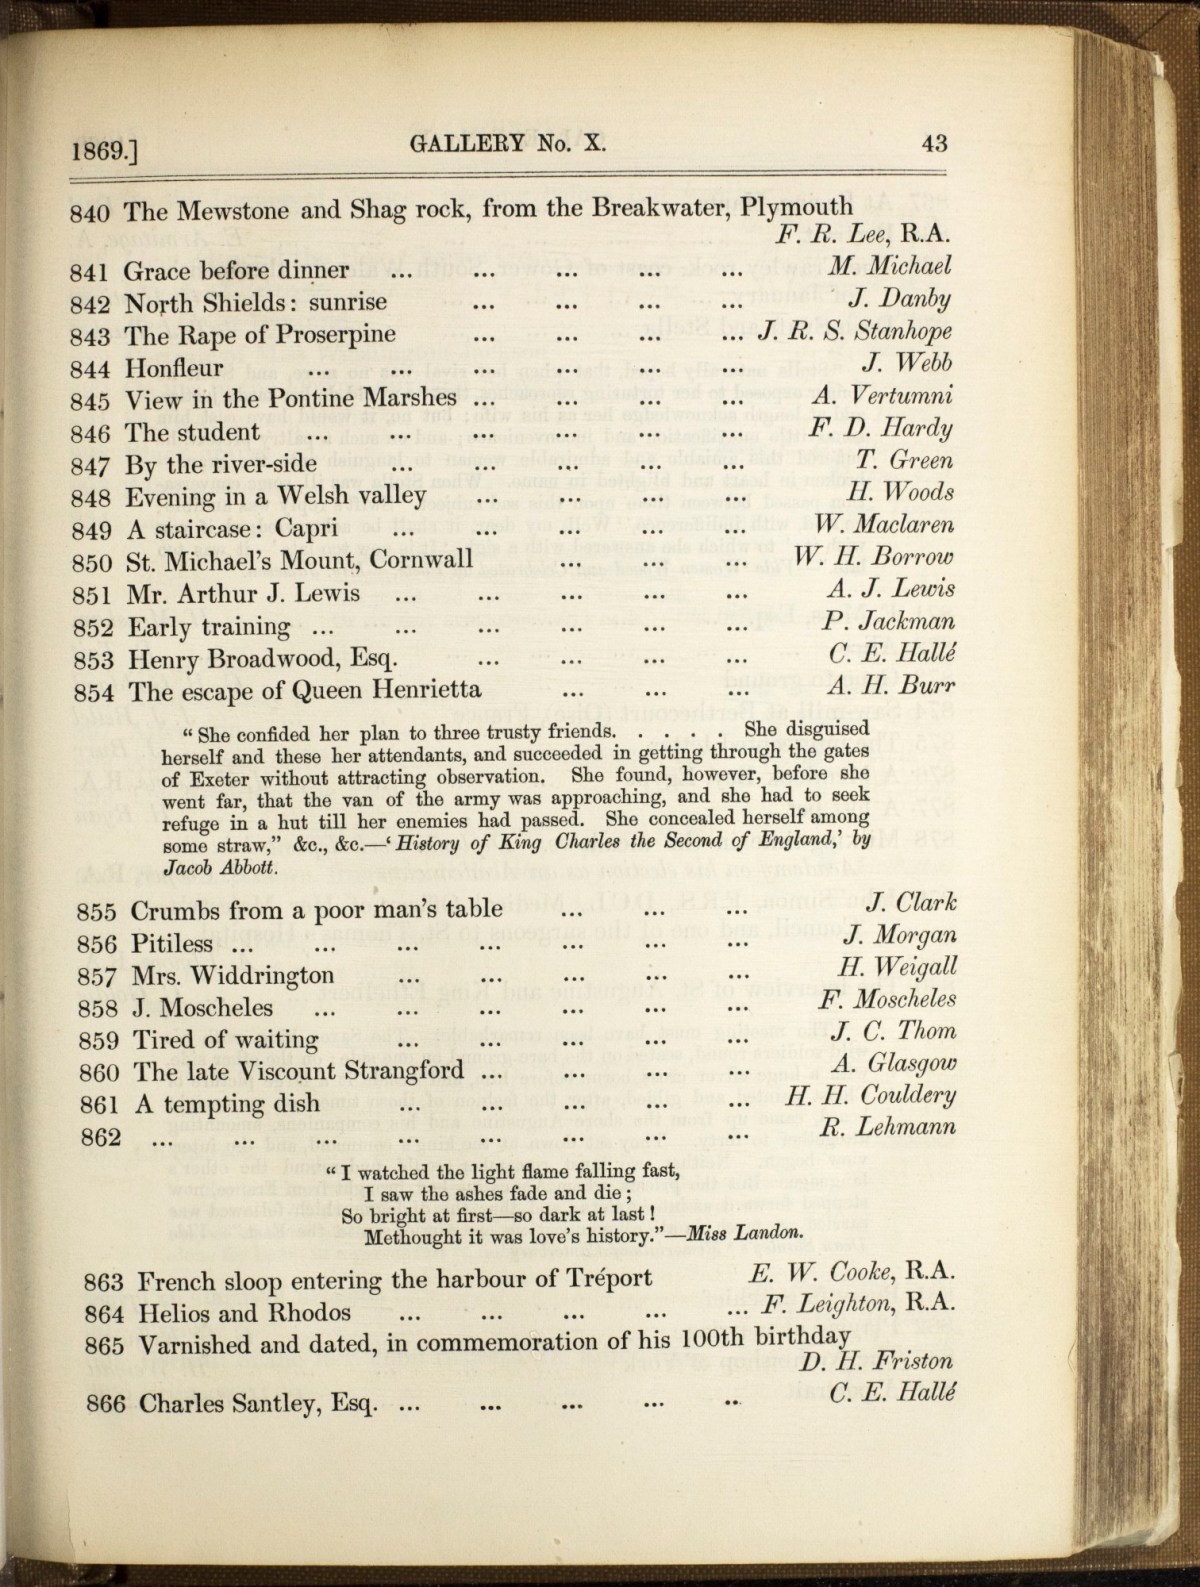 1869.] GALLERY No. X. 43
840 The Mewstone and Shag rock, from the Breakwater, Plymouth
F. R. Lee, R.A.
841 Grace before dinner ... ... ... ... ... M. Michael
842 North Shields: sunrise ... ... ... ... J. Danby
843 The Rape of Proserpine ... ... ... ... J. R. S. Stanhope
844 Honfleur ... ... ... ... ... ... J. Webb
845 View in the Pontine Marshes ... ... ... ... A. Vertumni
846 The student ... ... ... ... ... ... F. D. Hardy
847 By the river-side ... ... ... ... ... T. Green
848 Evening in a Welsh valley ... ... ... ... H. Woods
849 A staircase: Capri ... ... ... ... ... W. Maclaren
850 St. Michael's Mount, Cornwall ... ... ... W. H. Borrow
851 Mr. Arthur J. Lewis ... ... ... ... ... A. J. Lewis
852 Early training ... ... ... ... ... ... P. Jackman
853 Henry Broadwood, Esq. ... ... ... ... C. E. Hallé
854 The escape of Queen Henrietta ... ... ... A. H. Burr
“ She confided her plan to three trusty friends. . . . . She disguised
herself and these her attendants, and succeeded in getting through the gates
of Exeter without attracting observation. She found, however, before she
went far, that the van of the army was approaching, and she had to seek
refuge in a hut till her enemies had passed. She concealed herself among
some straw,” &c., &c.—‘History of King Charles the Second of England,’ by
Jacob Abbott.
855 Crumbs from a poor man's table ... ... ... J. Clark
856 Pitiless ... ... ... ... ... ... ... J. Morgan
857 Mrs. Widdrington ... ... ... ... ... H. Weigall
858 J. Moscheles ... ... ... ... ... ... F. Moscheles
859 Tired of waiting ... ... ... ... ... J. C. Thom
860 The late Viscount Strangford ... ... ... ... A. Glasgow
861 A tempting dish ... ... ... ... ... H. H. Couldery
862 ... ... ... ... ... ... ... ... R. Lehmann
“ I watched the light flame falling fast,
I saw the ashes fade and die;
So bright at first—so dark at last!
Methought it was love's history.”—Miss Landon.
863 French sloop entering the harbour of Tréport E. W. Cooke, R.A.
864 Helios and Rhodos ... ... ... ... ... F. Leighton, R.A.
865 Varnished and dated, in commemoration of his 100th birthday
D. H. Friston
866 Charles Santley, Esq. ... ... ... ... .. C. E. Hallé